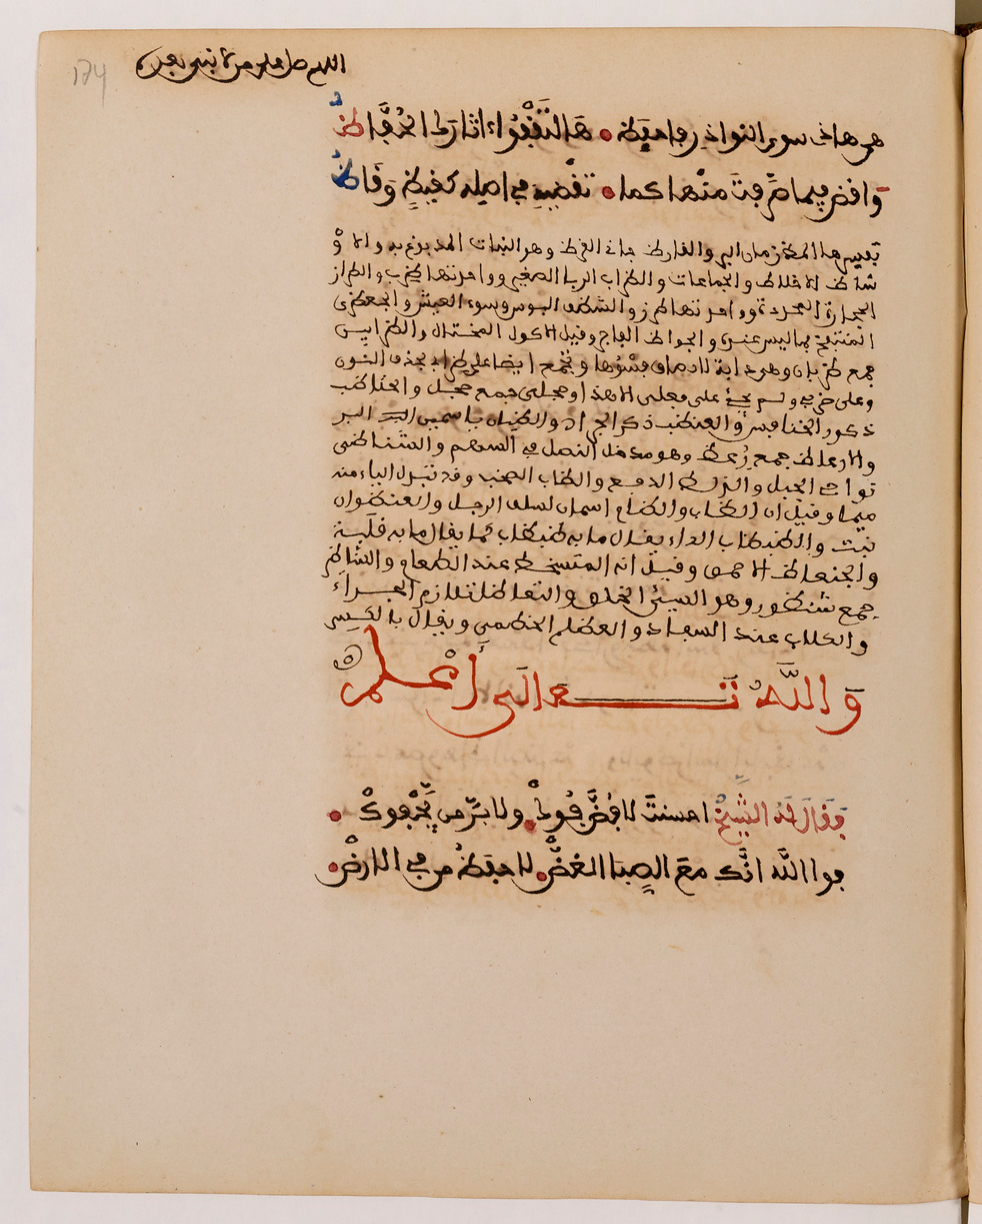 اللهم صل على من لا نبي بعده
174
هي هاذي سوى النوادر فاحفظها • هَا لتَقْفُوا ءاثارك الحُفَّاظُ
وَاقض فيما صَرَّفتَ منها كما • تقْضيهِ في اصله كقيظٍ وَقَاظُ
تفسيرها المظ رمان البر والقارظ جاني القرظ وهو النبات المدبوغ به والاوْ
شاظ الاخلاط والجماعات والظراب الربا الصغير وواحدتها ظرب والظرار
الحجارة المحددة وواحدتها ظرر والشظف البوس وسوء العيش والجعظري
المنتفخ بما ليس عنده والجواظ الفاجر وقيل الاكول المختال والظرابين
جمع ظربان وهي دابة لا يطاق فسْوُها وتجْمع ايضا على ظرابى بحذف النون
وعلى ظربى ولم يجئ على فعلى الا هذا وحجلى جمع حجل والحناظب
ذكور الخنافس والعنظب ذكر الجراد والظيان ياسمين البر
والارعاظ جمع رُعظ وهو مدخل النصل في السهم والشناظي
نواحي الجبل والدلظ الدفع والظاب الصخب وقد تبدل الباء منه
ميما وقيل ان الظاب والظام اسمان لسلف الرجل والعنظوان
نبت والظبظاب الداء يقال ما به ظبظاب كما يقال ما به قلبة
والجنعاظ الاحمق وقيل انه المتسخط عند الطعام والشناظير
جمع شنظير وهو السيئ الخلق والتعاظل تلازم الجراء
والكلاب عند السفاد والعظلم الخطمي ويقال بالكسر
وَاللَّهُ تَعَالَى أَعْلم
فقَالَ لَهُ الشَّيْخُ احسنتَ لا فُضَّ فُوكْ • ولا بَرَّ من يَّجْفوكْ •
فوا اللَّه انَّك معَ الصبا الغضّ • لاحفظُ من في الارضْ •